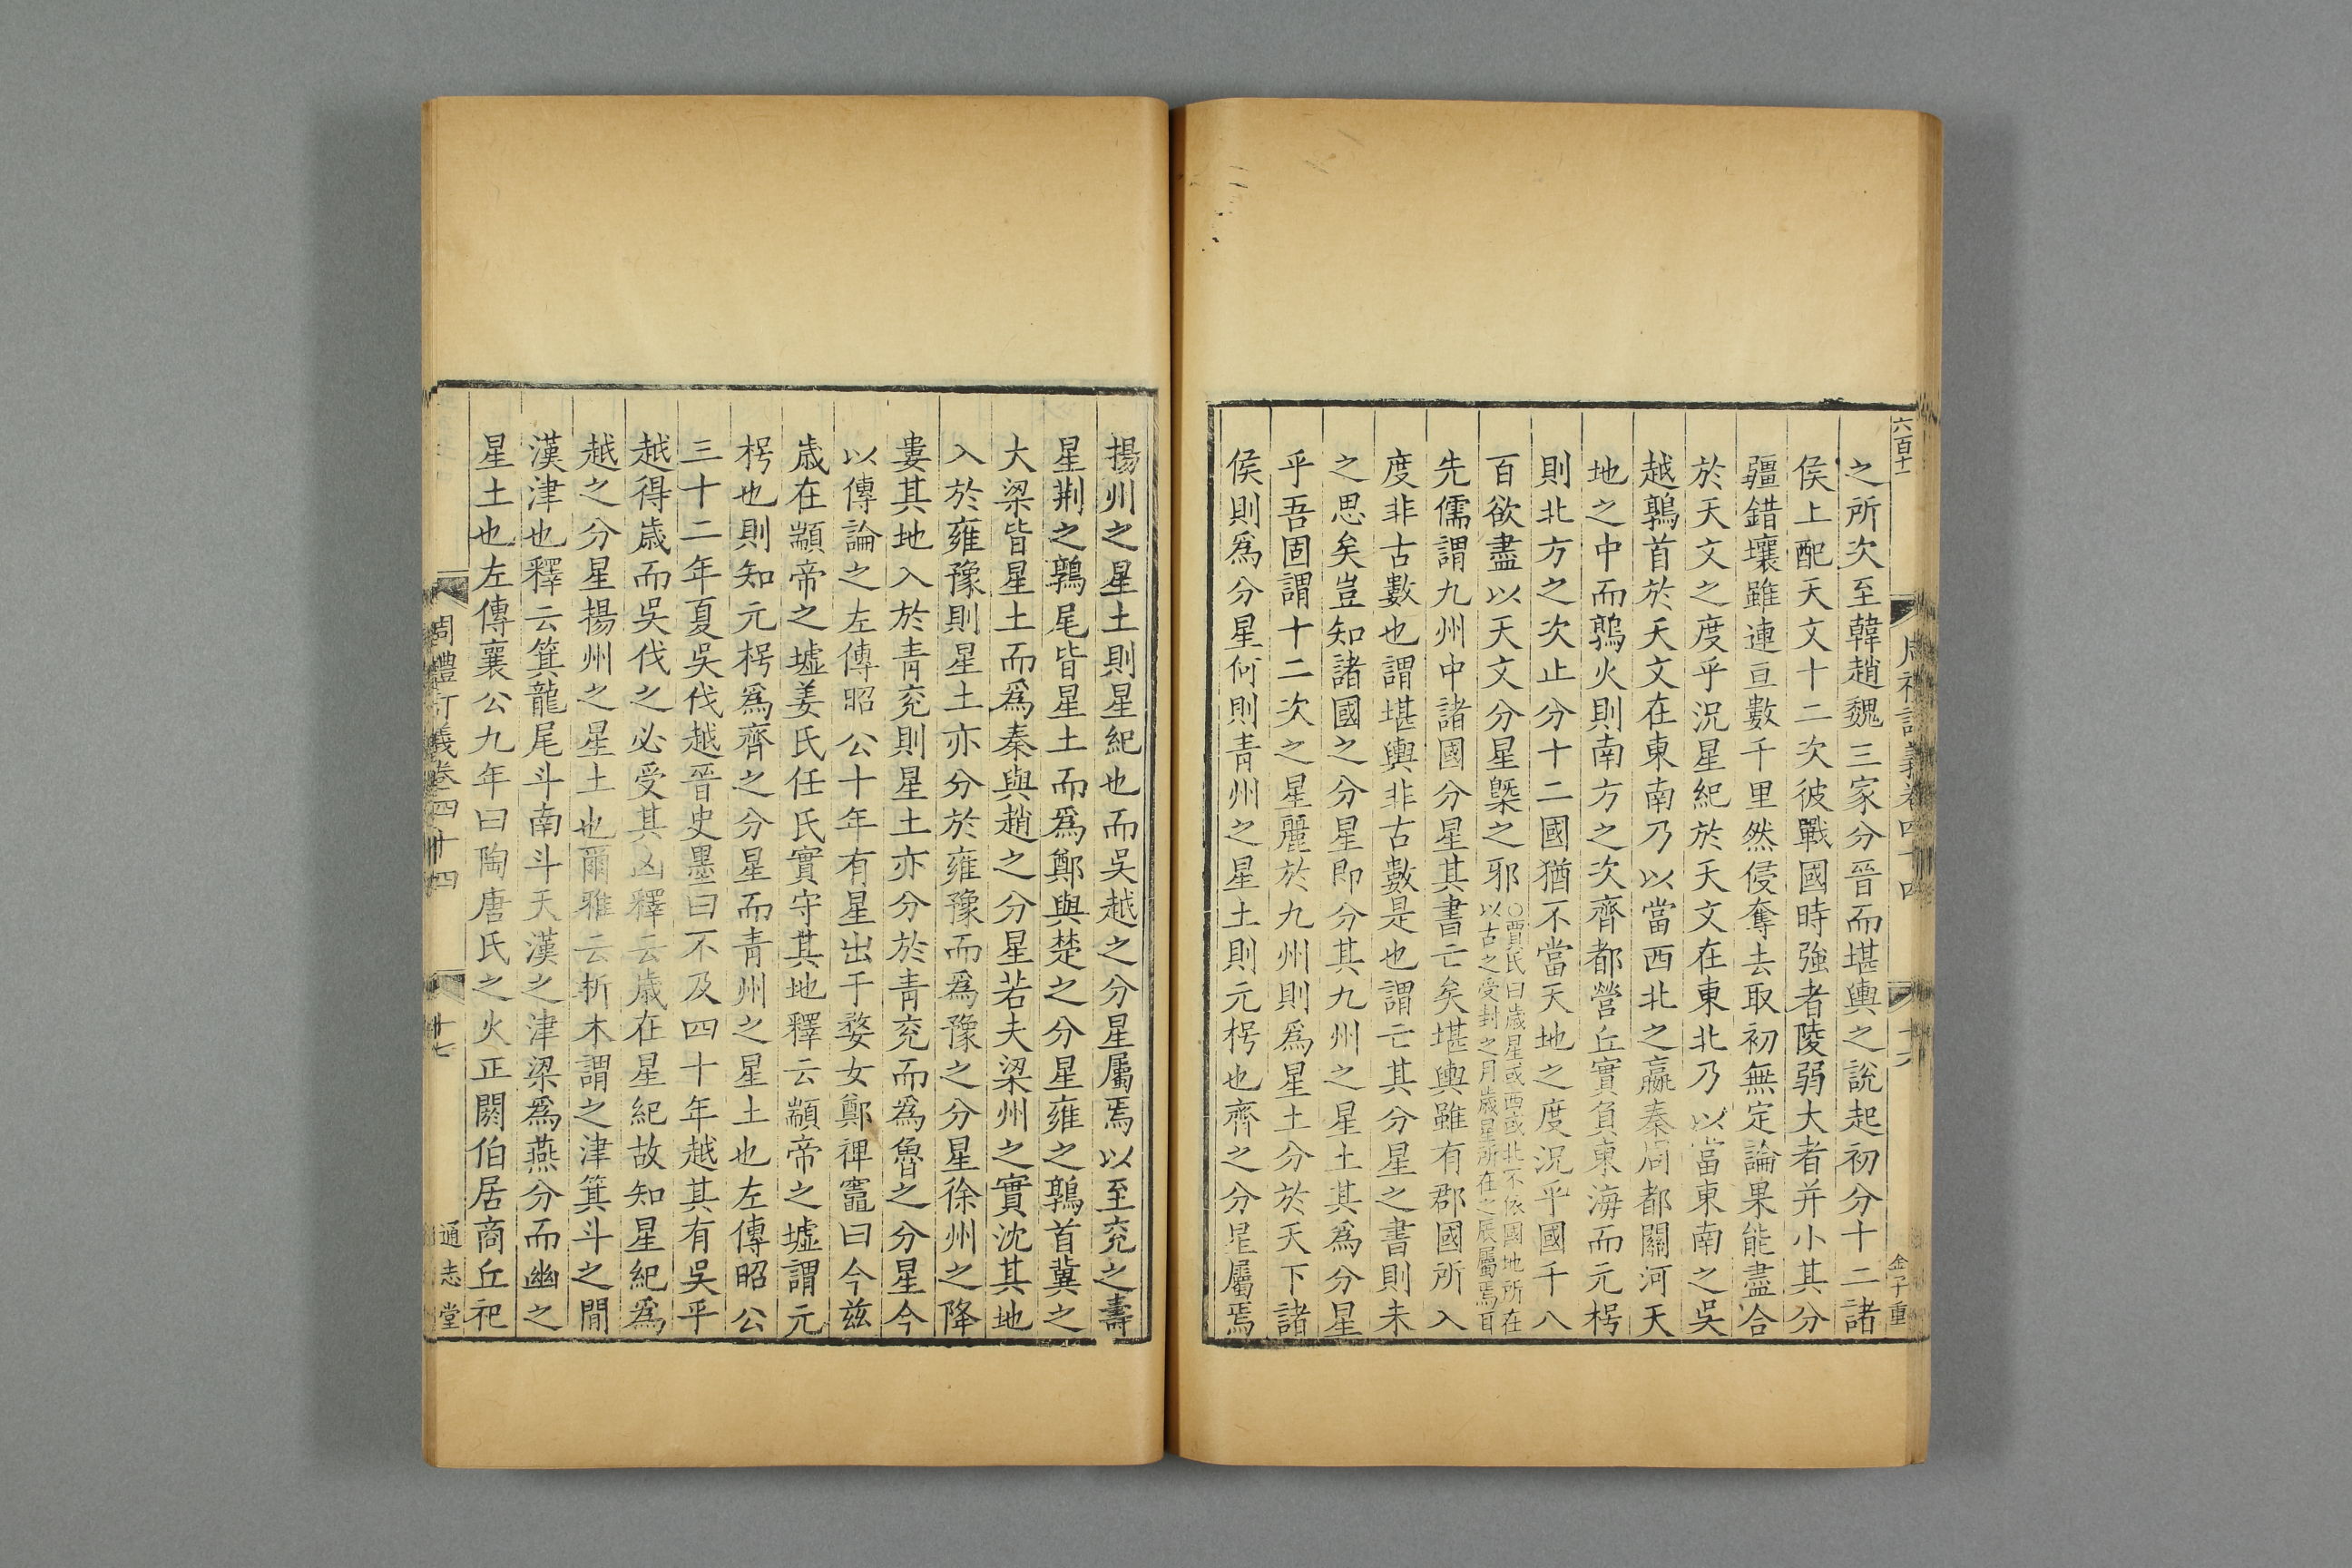 六百十一
金子重
之所次至韓趙魏三家分晉而堪輿之說起初分十二諸
侯上配天文十二次彼戰國時強者陵弱大者并小其分
疆錯壤雖連亘數千里然侵奪去取初無定論果能盡合
於天文之度乎況星紀於天文在東北乃以當東南之吳
越鶉首於天文在東南乃以當西北之嬴秦周都關河天
地之中而鶉火則南方之次齊都營丘實負東海而元枵
則北方之次止分十二國猶不當天地之度況乎國千八
百欲盡以天文分星槩之邪○賈氏曰歲星或西或北不依國地所在
以古之受封之月歲星所在之辰屬焉耳
先儒謂九州中諸國分星其書亡矣堪輿雖有郡國所入
度非古數也謂堪輿非古數是也謂亡其分星之書則未
之思矣豈知諸國之分星即分其九州之星土其為分星
乎吾固謂十二次之星麗於九州則爲星土分於天下諸
侯則爲分星何則青州之星土則元枵也齊之分星屬焉
揚州之星土則星紀也而吳越之分星屬焉以至兖之壽
星荆之鶉尾皆星土而爲鄭與楚之分星雍之鶉首冀之
大梁皆星土而爲秦與趙之分星若夫梁州之實沈其地
入於雍豫則星土亦分於雍豫而爲豫之分星徐州之降
婁其地入於青兖則星土亦分於青兖而爲魯之分星今
以傳論之左傳昭公十年有星出于婺女鄭禆竈曰今兹
歲在顓帝之墟姜氏任氏實守其地釋云顓帝之墟謂元
枵也則知元枵爲齊之分星而青州之星土也左傳昭公
三十二年夏吳伐越晉史墨曰不及四十年越其有吳乎
越得歲而吳伐之必受其凶釋云歲在星紀故知星紀爲
越之分星揚州之星土也爾雅云析木謂之津箕斗之閒
漢津也釋云箕龍尾斗南斗天漢之津梁爲燕分而幽之
星土也左傳襄公九年曰陶唐氏之火正閼伯居商丘祀
周禮訂義卷四十四
十七
通志堂